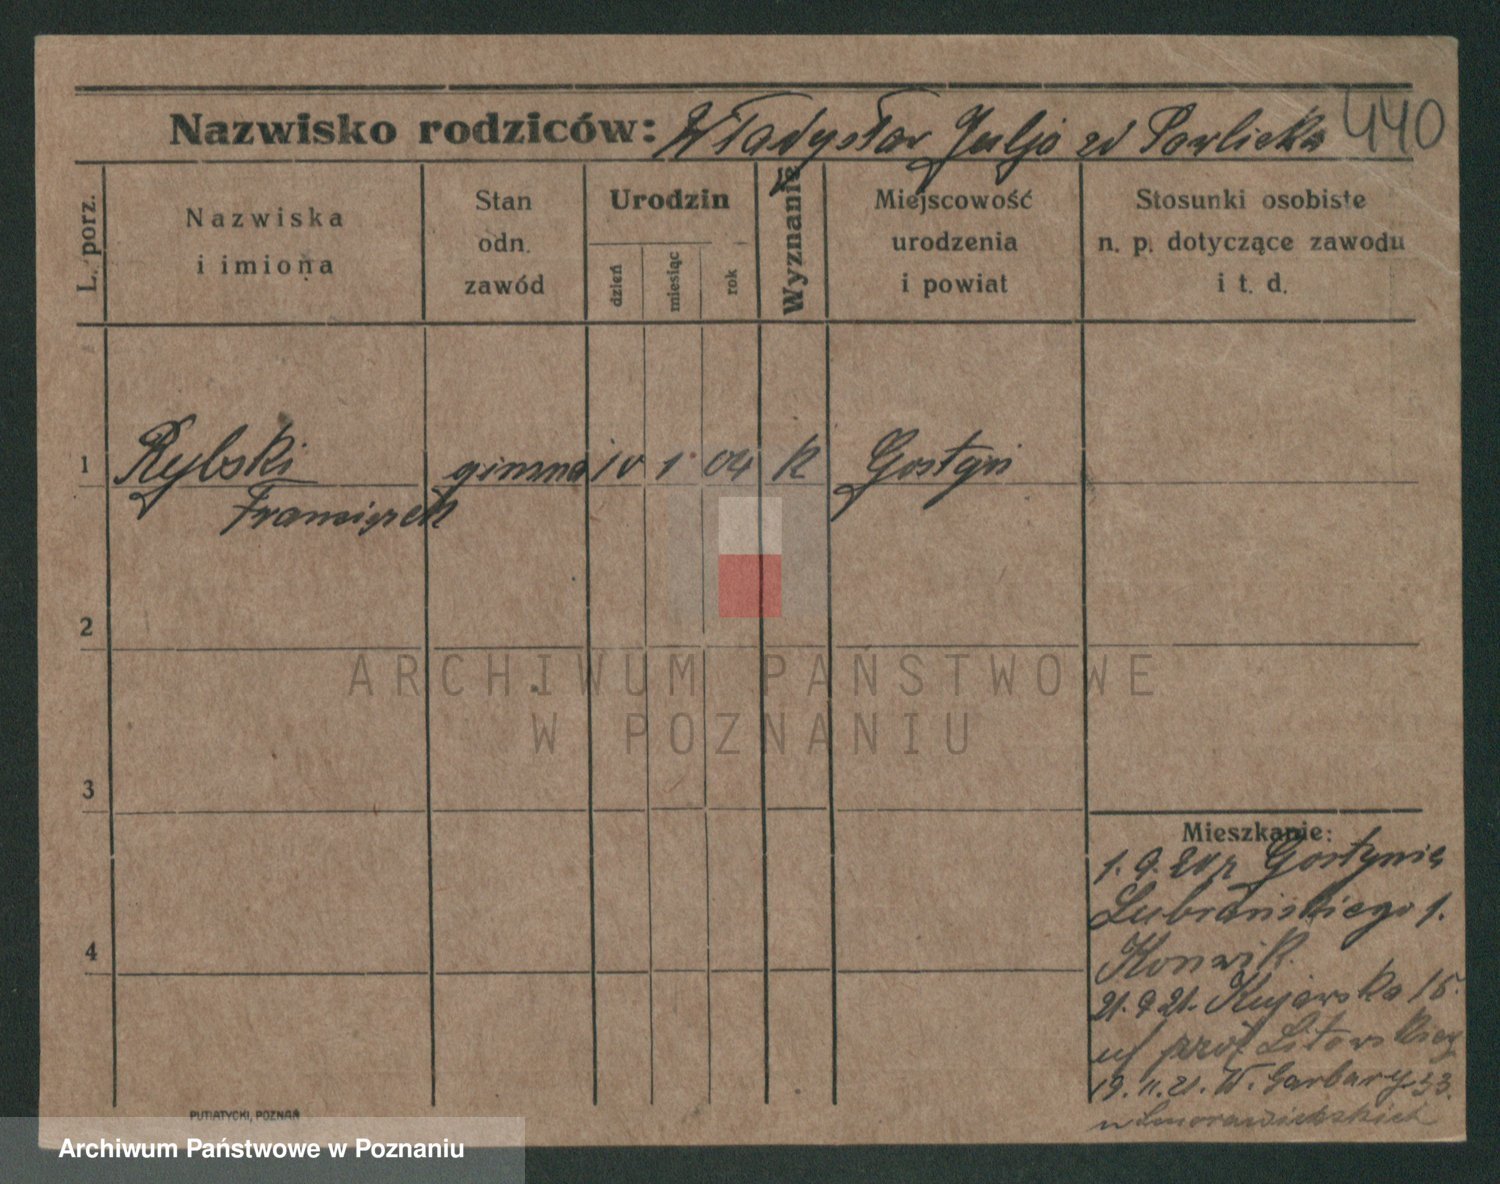 Nazwisko rodziców: Władysław Julja zd Pawlicka 440
L. porz.
Nazwiska
i imiona
Stan
odn.
zawód
Urodzin
dzień
miesiąc
rok
Wyznanie
Miejscowość
urodzenia
i powiat
Stosunki osobiste
n. p. dotyczące zawodu
i t. d.
1 Rybski gimna 10 1 04 k Gostyń
Franciszek
2
ARCHIWUM PAŃSTWOWE
W POZNANIU
3
Mieszkanie:
1.9.20 z Gostynia
Lubrańskiego 1.
4
Konwik.
21.9.21. Kujawska 15.
u prof Litowskiego
19.11.21. W. Garbary 33.
PUTIATYCKI, POZNAŃ
Archiwum Państwowe w Poznaniu